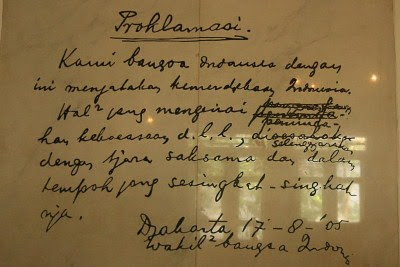 Proklamasi.
Kami bangsa Indonesia dengan
ini menjatakan kemerdekaan Indonesia.
Hal² jang mengenai
peminda-
han kekoeasaan d.l.l., dioesahakan
selenggarakan
dengan tjara saksama dan dalam
tempoh jang sesingkat-singkat
nja.
Djakarta 17-8-'05
Wakil² bangsa